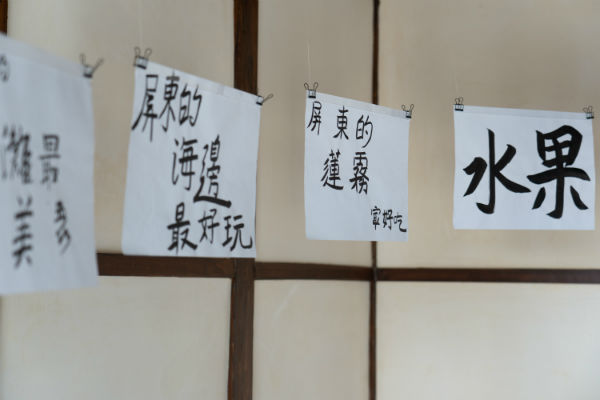 灘最
美
屏東的
海邊
最好玩
屏東的
蓮霧
家好吃
水果